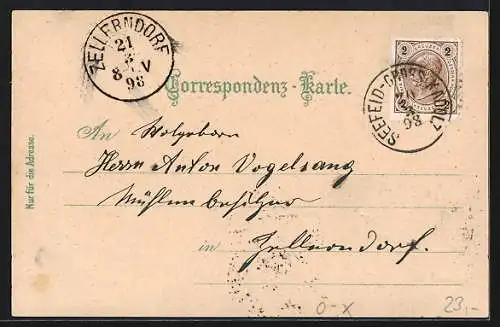 ZELLERNDORF
21
8 V
98
Correspondenz-Karte.
2 2
SEEFELD-GROSS KADOLZ
98
An Wolgeboren
Herrn Anton Vogelsang
Mühlenbesitzer
in Zellerndorf.
Nur für die Adresse.
Ö-X
23,-